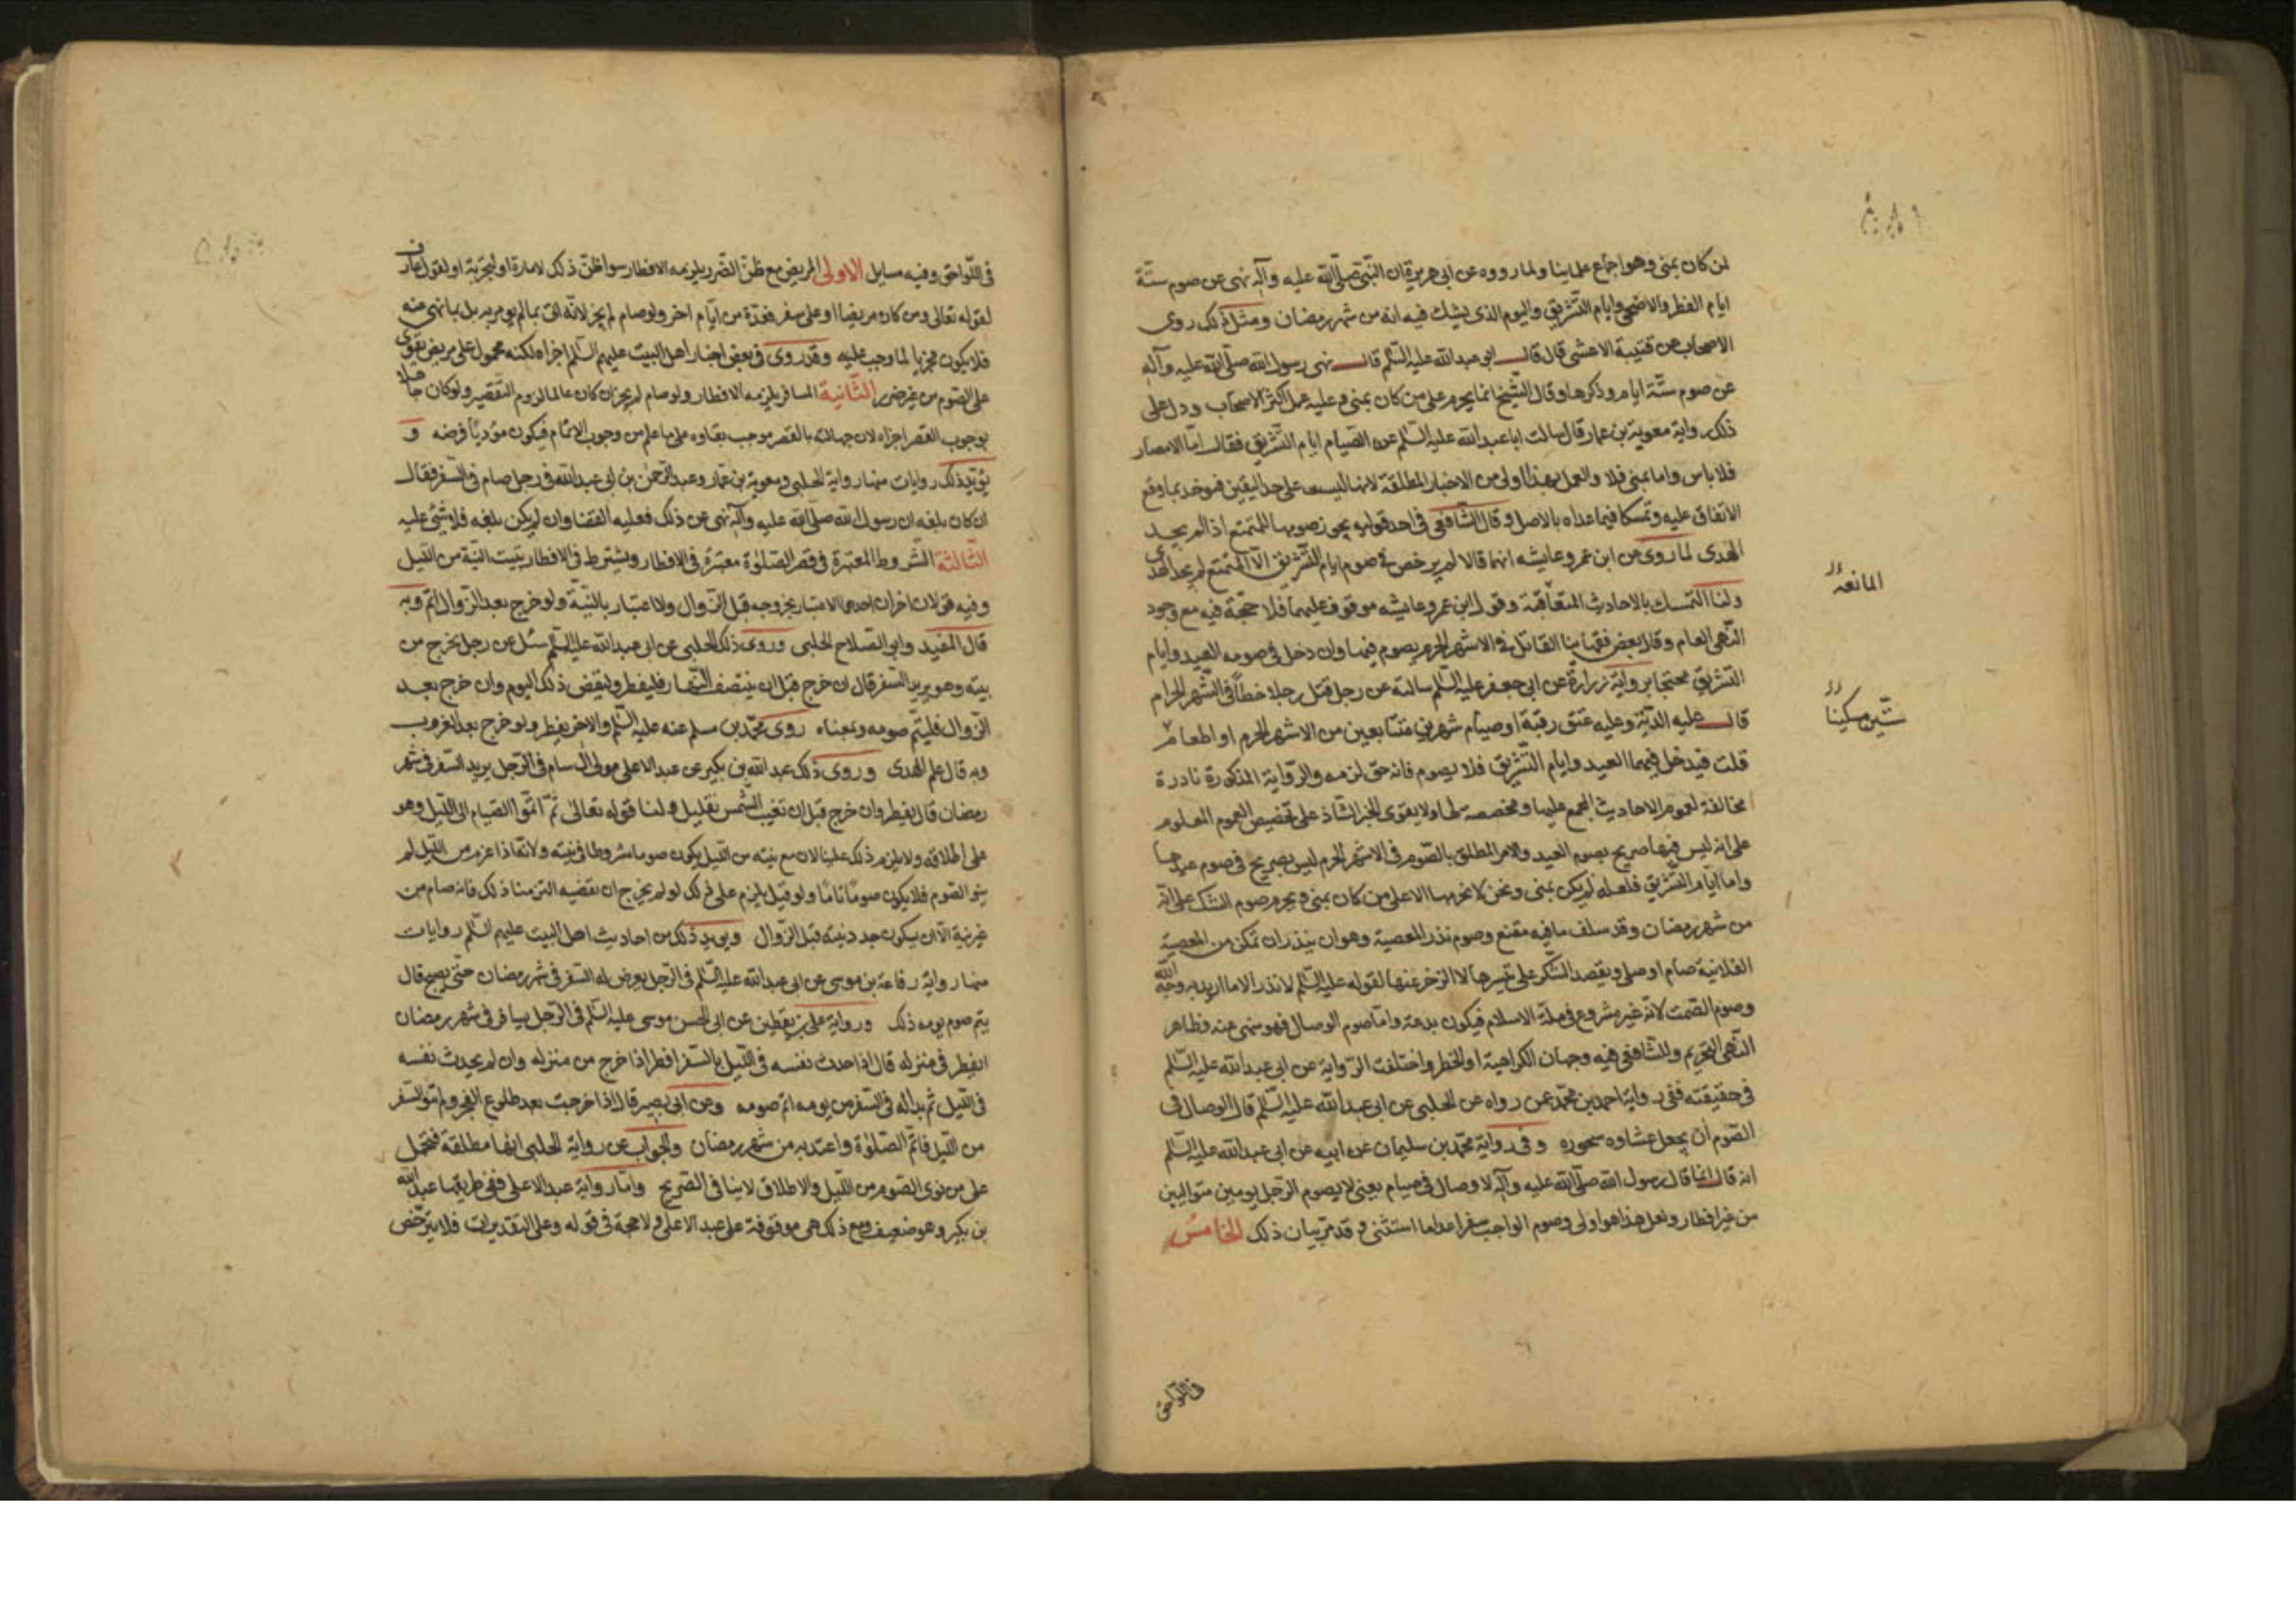 لمن كان بمنى وهو اجماع علماينا ولما رووه عن ابى هريرة ان النبى صلى الله عليه وآله نهى عن صوم ستة
ايام الفطر والاضحى وايام التشريق واليوم الذى يشك فيه انه من شهر رمضان ومثل ذلك روى
الاصحاب عن قتيبة الاعشى قال قال ابو عبد الله عليه السلم قال نهى رسول الله صلى الله عليه وآله
عن صوم ستة ايام وذكرها وقال الشيخ انما يحرم على من كان بمنى وعليه عمل اكثر الاصحاب ودل على
ذلك رواية معوية بن عمار قال سالت ابا عبد الله عليه السلم عن الصيام ايام التشريق فقال اما الامصار
فلا باس واما بمنى فلا والعمل بهذا اولى من الاخبار المطلقة لانها ليست على حد اليقين فيوخذ بما وقع
الاتفاق عليه وتمسكا فيما عداه بالاصل وقال الشافعى فى احد قوليه يجوز صومها للمتمتع اذا لم يجد
الهدى لما روى عن ابن عمر وعايشه انهما قالا لم يرخص فى صوم ايام التشريق الا المتمتع لم يجد الهدى
ولنا التمسك بالاحاديث المتعاقبة وقول ابن عمر وعايشه موقوف عليهما فلا حجة فيه مع وجود
المانعه
النهى العام وقال بعض فقهاينا القاتل فى الاشهر الحرم يصوم فيها وان دخل فى صومه العيد وايام
التشريق محتجا برواية زرارة عن ابى جعفر عليه السلم سالته عن رجل قتل رجلا خطأ فى الشهر الحرام
قال عليه الدية وعليه عتق رقبة او صيام شهرين متتابعين من الاشهر الحرم او اطعام
ستين مسكينا
قلت فيدخل فيهما العيد وايام التشريق فلا يصوم فانه حق لزمه والرواية المذكورة نادرة
مخالفة لعموم الاحاديث المجمع عليها ومخصصة لها ولا يقوى الخبر الشاذ على تخصيص العموم المعلوم
على انه ليس فيها صريح بصوم العيد والامر المطلق بالصوم فى الاشهر الحرم ليس بصريح فى صوم عيدها
واما ايام التشريق فلعله لم يكن بمنى ونحن لا نحرمها الا على من كان بمنى ويحرم صوم الشك على انه
من شهر رمضان وقد سلف ما فيه مقنع وصوم نذر المعصية وهو ان ينذر ان تمكن من المعصية
الفلانية صام او صلى ويقصد الشكر على تيسرها لا الزجر عنها لقوله عليه السلم لا نذر الا ما اريد به وجه الله
وصوم الصمت لانه غير مشروع فى ملة الاسلام فيكون بدعة واما صوم الوصال فهو منهى عنه فظاهر
النهى التحريم وللشافعى فيه وجهان الكراهية او الحظر واختلفت الرواية عن ابى عبد الله عليه السلم
فى حقيقته ففى رواية احمد بن محمد عمن رواه عن الحلبى عن ابى عبد الله عليه السلم قال الوصال فى
الصوم ان يجعل عشاوه سحوره وفى رواية محمد بن سليمان عن ابيه عن ابى عبد الله عليه السلم
انه قال انما قال رسول الله صلى الله عليه وآله لا وصال فى صيام يعنى لا يصوم الرجل يومين متواليين
من غير افطار ولعل هذا هو اولى وصوم الواجب سفرا عدا ما استثنى وقد مر بيان ذلك الخامس
فى اللواحق
فى اللواحق وفيه مسايل الاولى المريض مع ظن الضرر يلزمه الافطار سوا ظن ذلك لامارة او لتجربة او لقول عارف
لقوله تعالى ومن كان مريضا او على سفر فعدة من ايام اخر ولو صام لم يجز لانه اتى بما لم يومر به بل بما نهى عنه
فلا يكون مجزيا لما وجب عليه وقد روى فى بعض اخبار اهل البيت عليهم السلم اجزاه لكنه محمول على مريض يقوى
على الصوم من غير ضرر الثانية المسافر يلزمه الافطار ولو صام لم يجز ان كان عالما لزوم التقصير ولو كان جاهلا
بوجوب القصر اجزاه لان جهالته بالقصر موجب بقاوه على ما علم من وجوب الاتمام فيكون موديا فرضه و
يؤيد ذلك روايات منها رواية الحلبى ومعوية بن عمار وعبد الرحمن بن ابى عبد الله فى رجل صام فى السفر فقال
ان كان بلغه ان رسول الله صلى الله عليه وآله نهى عن ذلك فعليه القضا وان لم يكن بلغه فلا شئ عليه
الثالثة الشروط المعتبرة فى قصر الصلوة معتبرة فى الافطار ويشترط فى الافطار تبييت النية من الليل
وفيه قولان اخران احدهما الاعتبار بخروجه قبل الزوال ولا اعتبار بالنية ولو خرج بعد الزوال اتم وبه
قال المفيد وابو الصلاح الحلبى وروى ذلك الحلبى عن ابى عبد الله عليه السلم سئل عن رجل يخرج من
بيته وهو يريد السفر قال ان خرج قبل ان ينتصف النهار فليفطر وليقض ذلك اليوم وان خرج بعد
الزوال فليتم صومه وبمعناه روى محمد بن مسلم عنه عليه السلم والاخر يفطر ولو خرج بعد الغروب
وبه قال علم الهدى وروى ذلك عبد الله بن بكير عن عبد الاعلى مولى آل سام فى الرجل يريد السفر فى شهر
رمضان قال يفطر وان خرج قبل ان تغيب الشمس بقليل ولنا قوله تعالى ثم اتموا الصيام الى الليل وهو
على اطلاقه ولا يلزم ذلك علينا لان مع نيته من الليل يكون صوما مشروطا فى نيته ولانه اذا عزم من الليل لم
ينو الصوم فلا يكون صوما تاما ولو قيل يلزم على ذلك لو لم يخرج ان يقضيه التزمنا ذلك فانه صام من
غير نية الا ان يكون جدد نيته قبل الزوال ويويد ذلك من احاديث اهل البيت عليهم السلم روايات
منها رواية رفاعة بن موسى عن ابى عبد الله عليه السلم فى الرجل يعرض له السفر فى شهر رمضان حتى يصبح قال
يتم صوم يومه ذلك ورواية على بن يقطين عن ابى الحسن موسى عليه السلم فى الرجل يسافر فى شهر رمضان
ايفطر فى منزله قال اذا حدث نفسه فى الليل بالسفر افطر اذا خرج من منزله وان لم يحدث نفسه
فى الليل ثم بدا له فى السفر من يومه اتم صومه وعن ابى بصير قال اذا خرجت بعد طلوع الفجر ولم تنو السفر
من الليل فاتم الصلوة واعتد به من شهر رمضان والجواب عن رواية الحلبى انها مطلقة فتحمل
على من نوى الصوم من الليل والاطلاق لا ينافى التصريح واما رواية عبد الاعلى ففى طريقها عبد الله
بن بكير وهو ضعيف ومع ذلك هى موقوفة على عبد الاعلى ولا حجة فى قوله وعلى التقديرات فلا يترخص